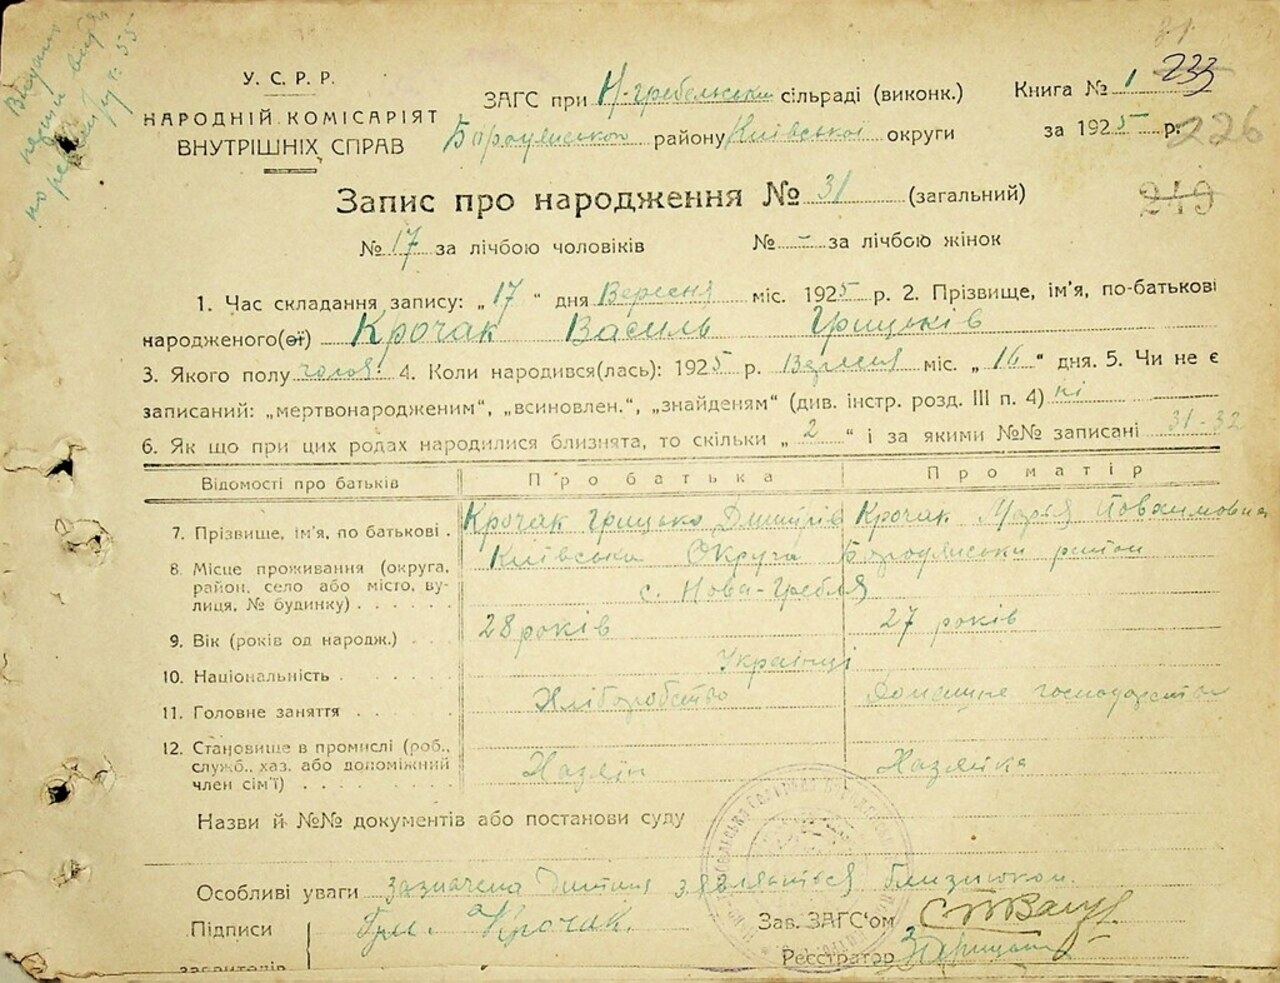 У. С. Р. Р.
НАРОДНІЙ КОМІСАРІЯТ
ВНУТРІШНІХ СПРАВ
ЗАГС при Н-Гребельский сільраді (виконк.)
Бородянського району Київської округи
Книга № 1 233
за 1925 р. 226
Запис про народження № 31 (загальний)
249
№ 17 за лічбою чоловіків № – за лічбою жінок
1. Час складання запису: „ 17 “ дня Вересня міс. 1925 р. 2. Прізвище, ім'я, по-батькові
народженого(ої) Крочак Василь Грицьків
3. Якого полу чолов. 4. Коли народився(лась): 1925 р. Вересня міс. „ 16 “ дня. 5. Чи не є
записаний: „мертвонародженим“, „всиновлен.“, „знайденям“ (див. інстр. розд. III п. 4) ні
6. Як що при цих родах народилися близнята, то скільки „ 2 “ і за якими №№ записані 31-32
Відомості про батьків Про батька Про матір
7. Прізвище, ім'я, по батькові . Крочак Грицько Дмитрів Крочак Марья Йовхимовна
8. Місце проживання (округа, район, село або місто, вулиця, № будинку) . . . . . . Київська Округа Бородянський район
с. Нова-Гребля
9. Вік (років од народж.) . . 28 років 27 років
10. Національність . . . . . . Українці
11. Головне заняття . . . . . Хліборобство Домашнє господарство
12. Становище в промислі (роб., служб., хаз. або допоміжний член сім'ї) . . . . . . . . Хазяїн Хазяйка
Назви й №№ документів або постанови суду
Особливі уваги Зазначена Дитина являється близнюком.
Підписи Гр. Крочак. Зав. ЗАГС'ом
Реєстратор
заявителів